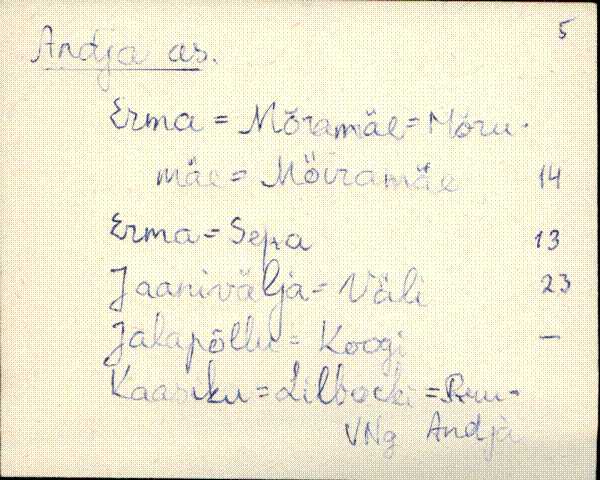 5
Andja as.
Erma = Mõramäe = Mõru-
mäe = Mõiramäe 14
Erma = Sepa 13
Jaanivälja = Väli 23
Jalapõllu = Koogi —
Kaasiku = Lilbocki = Ruu-
VNg Andja